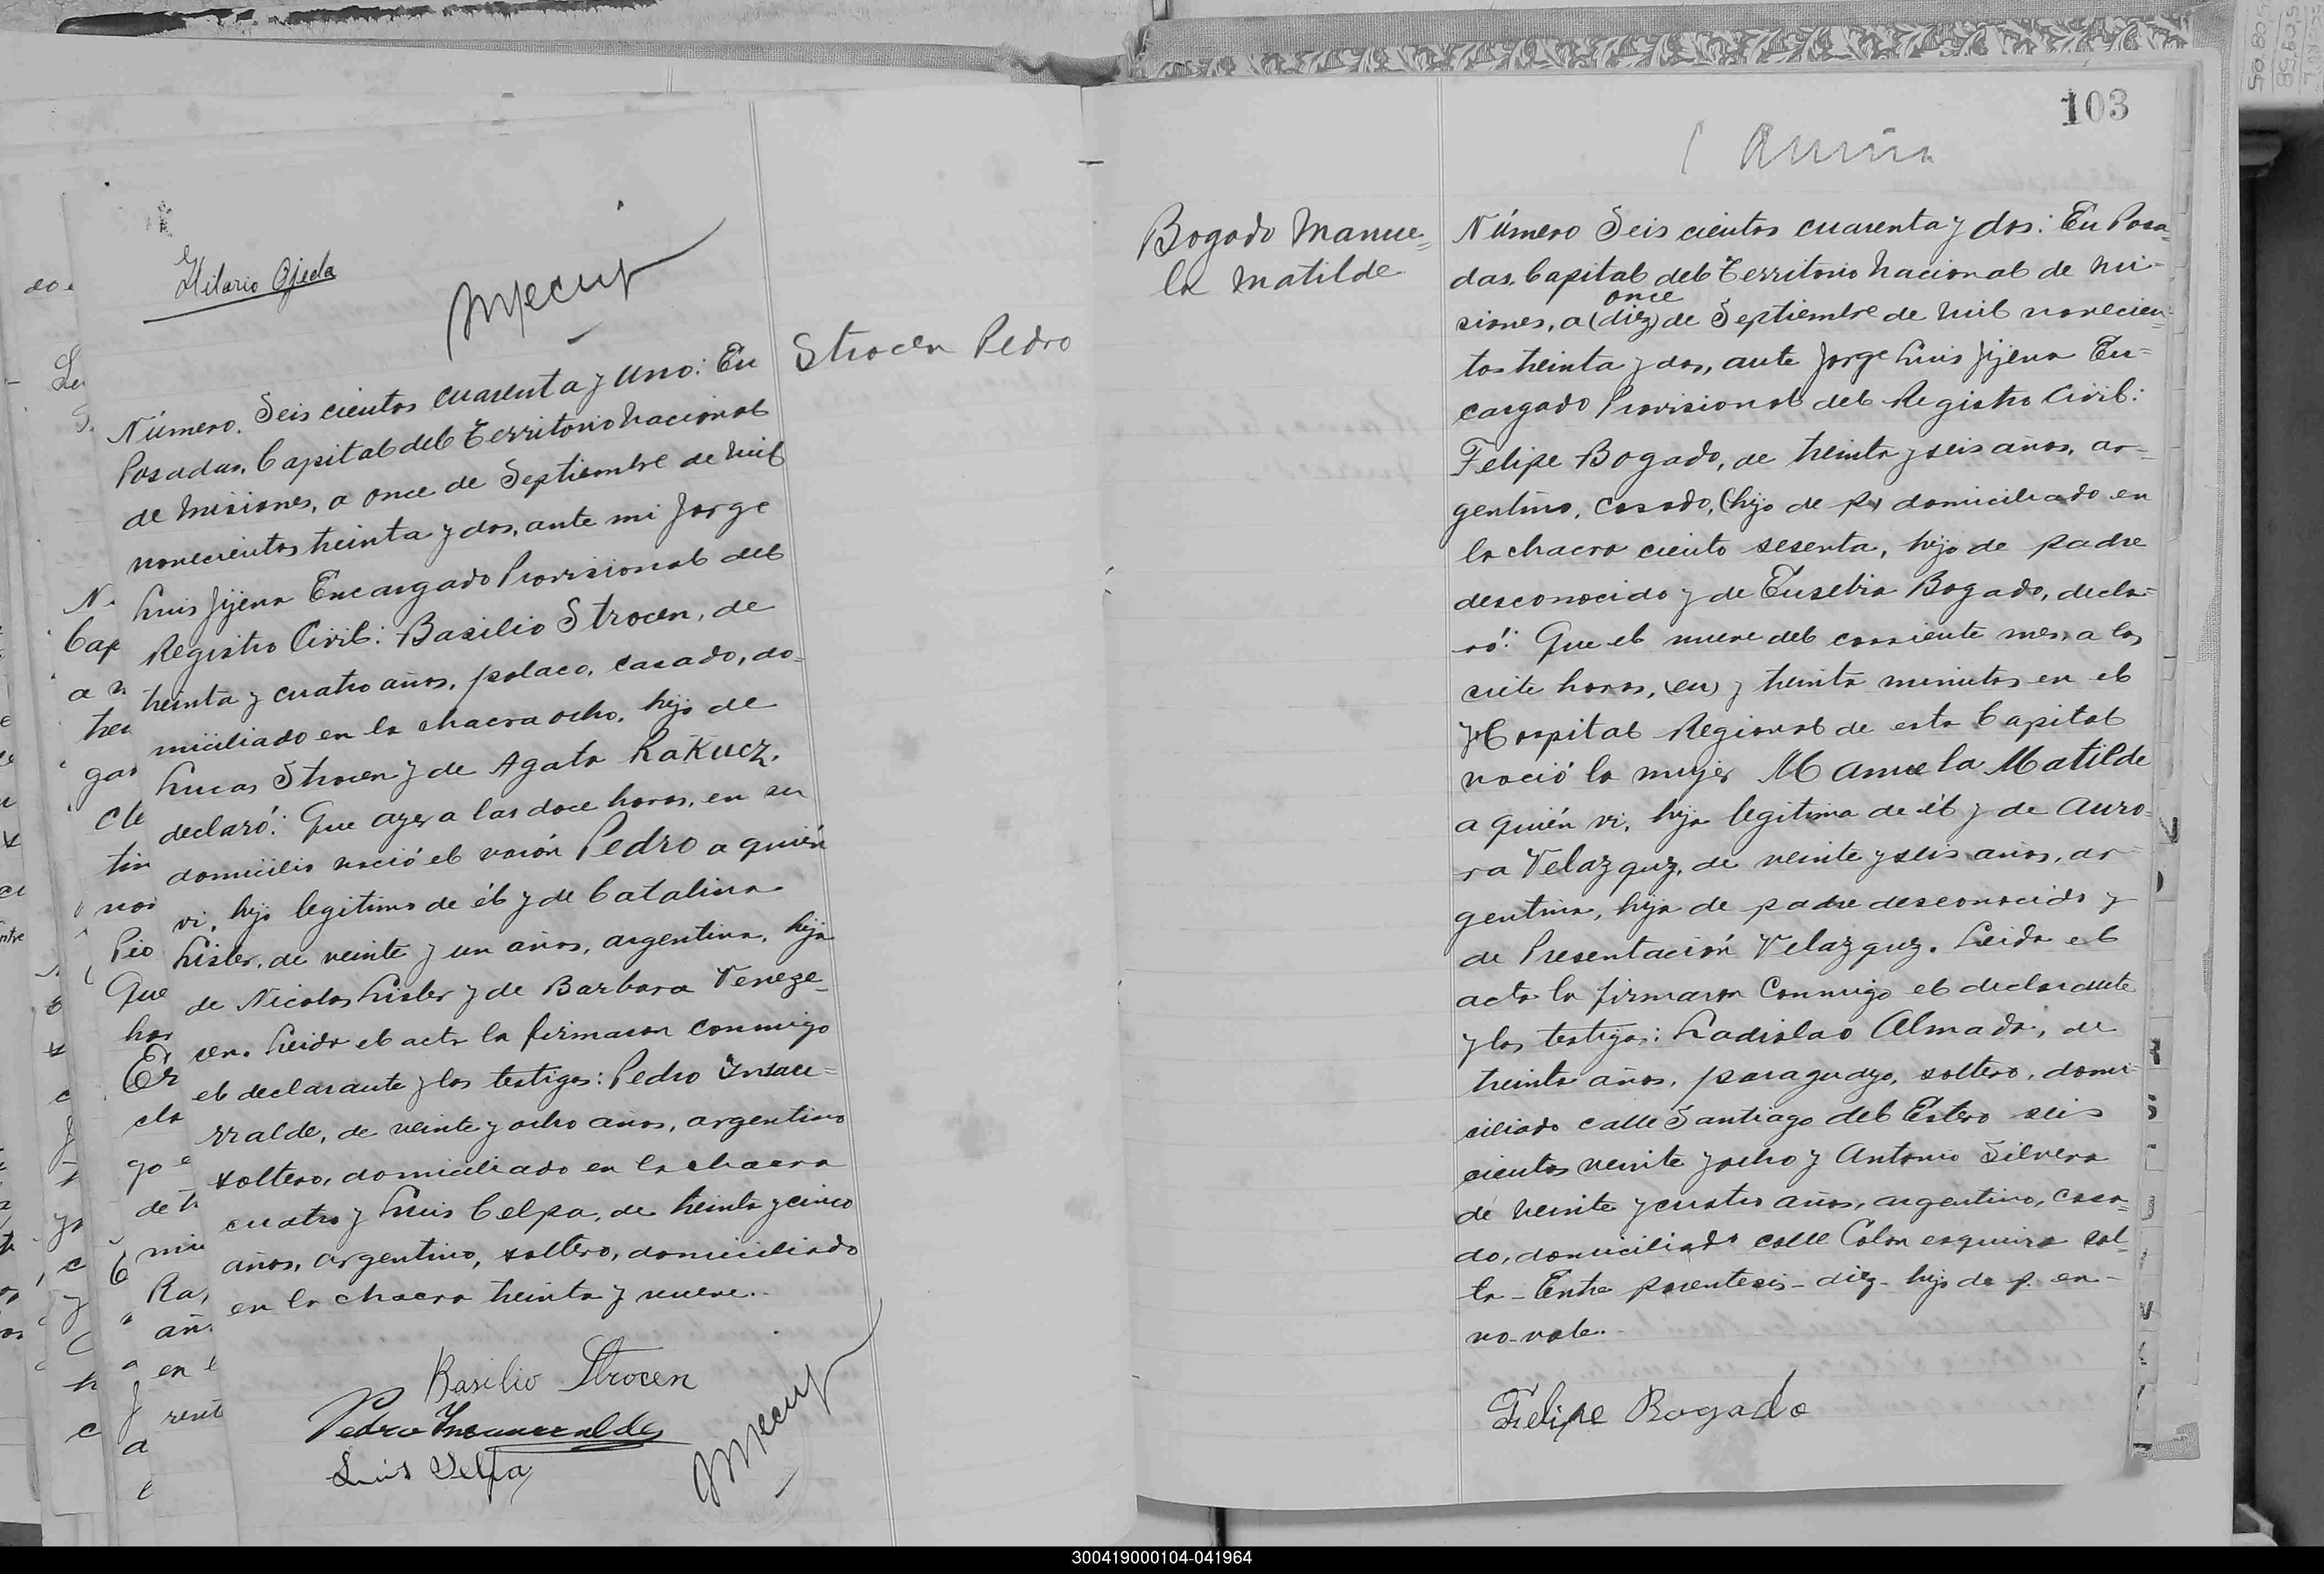 Hilario Ojeda
Strocen Pedro
Número. Seis cientos cuarenta y uno: En
Posadas, Capital del Territorio Nacional
de Misiones, a once de Septiembre de mil
novecientos treinta y dos, ante mi Jorge
Luis Jijena Encargado Provisional del
Registro Civil: Basilio Strocen, de
treinta y cuatro años, polaco, casado, do-
miciliado en la chacra ocho, hijo de
Lucas Strocen y de Agata Rakucz.
declaró: Que ayer a las doce horas, en su
domicilio nació el varón Pedro a quién
vi, hijo legitimo de él y de Catalina
Lisler, de veinte y un años, argentina, hija
de Nicolas Lisler y de Barbara Veneze-
cen. Leida el acta la firmaron conmigo
el declarante y los testigos: Pedro Insau-
rralde, de veinte y ocho años, argentino
soltero, domiciliado en la chacra
cuatro y Luis Celpa, de treinta y cinco
años, argentino, soltero, domiciliado
en la chacra treinta y nueve.-
Basilio Strocen
Pedro Insaurralde
Luis Velpa
103
Bogado Manue=
la Matilde
Número Seis cientos cuarenta y dos: En Posa=
das, Capital del Territorio Nacional de Mi-
once
siones, a (diez) de Septiembre de mil novecien=
tos treinta y dos, ante Jorge Luis Jijena En=
cargado Provisional del Registro Civil:
Felipe Bogado, de treinta y seis años, ar=
gentino, casado, (hijo de p.) domiciliado en
la chacra ciento sesenta, hijo de padre
desconocido y de Eusebia Bogado, decla=
ró: Que el nueve del corriente mes, a las
siete horas, (en) y treinta minutos en el
Hospital Regional de esta Capital
nació la mujer Manuela Matilde
a quién vi, hija legitima de él y de Auro=
ra Velazquz, de veinte y seis años, ar-
gentina, hija de padre desconocido y
de Presentación Velazquz. Leida el
acta la firmaron conmigo el declarante
y los testigos: Ladislao Almada, de
treinta años, paraguayo, soltero, domi-
ciliado calle Santiago del Estero seis
cientos veinte y ocho y Antonio Silvera
de veinte y cuatro años, argentino, casa=
do, domiciliado calle Colon esquina Sal=
ta - Entre parentesis - diez - hijo de p. en -
no vale.-
Felipe Bogado
300419000104-041964